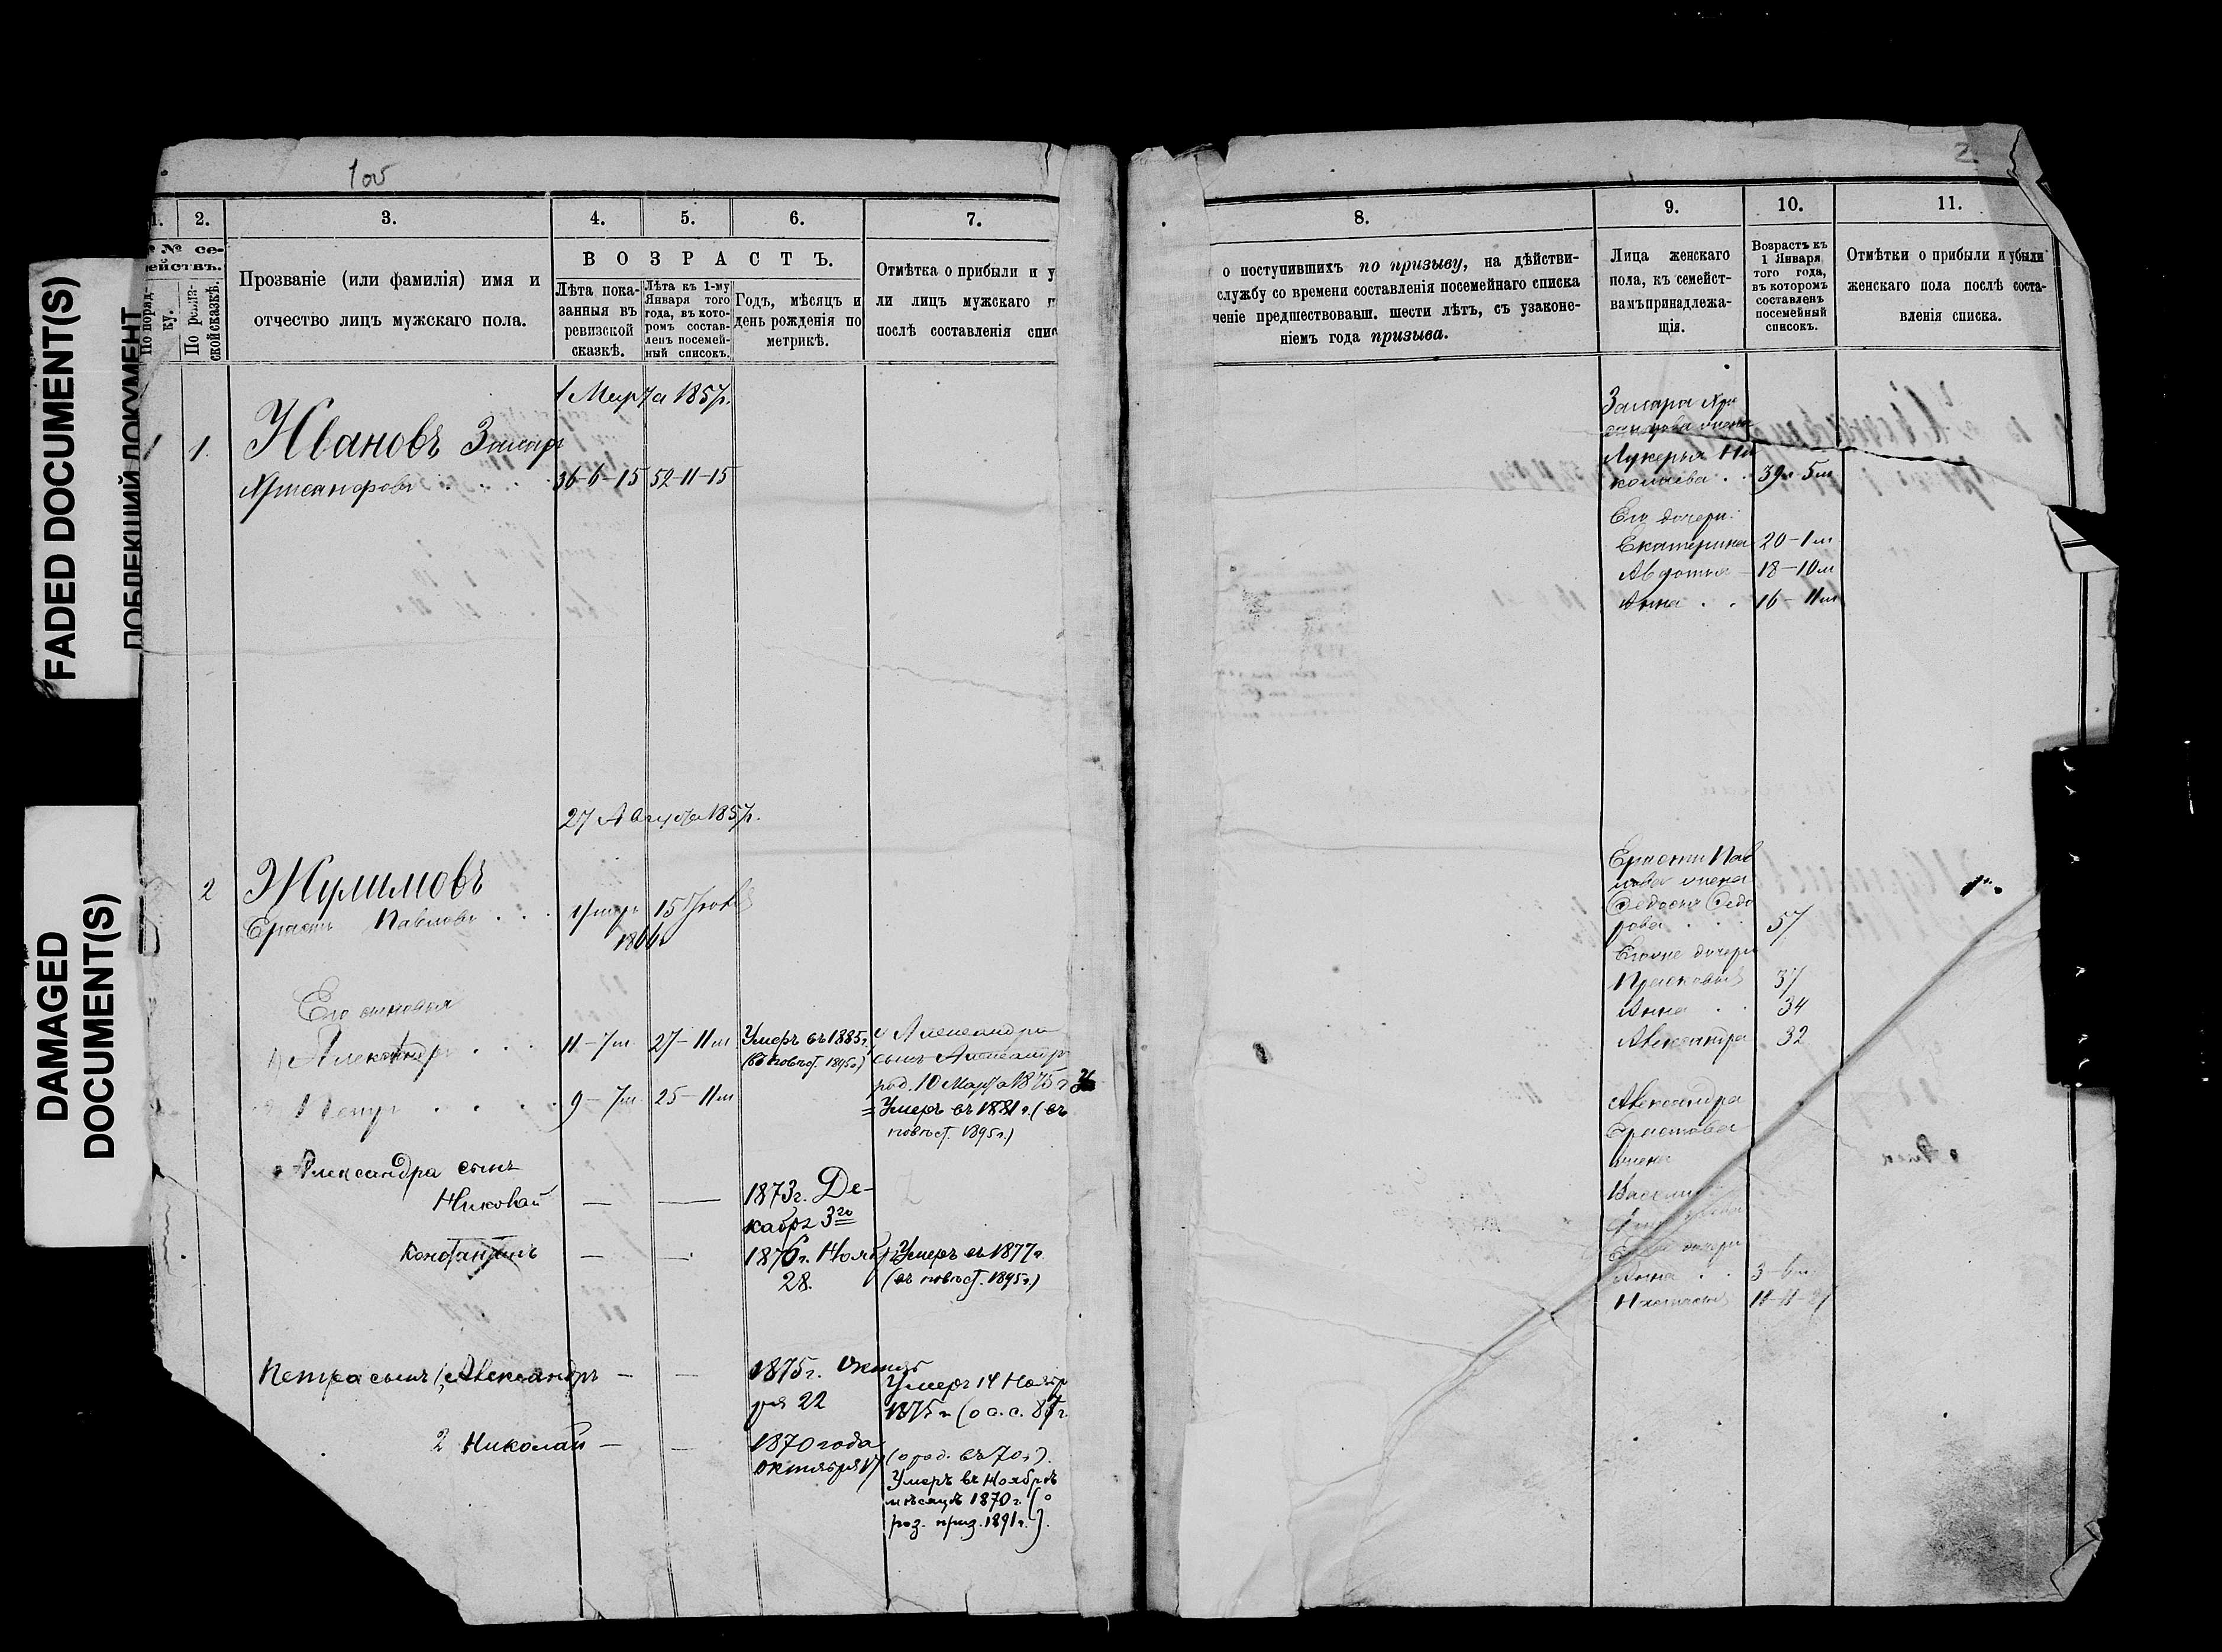 1об
2
FADED DOCUMENT(S)
ПОБЛЕКШИЙ ДОКУМЕНТ
DAMAGED
DOCUMENT(S)
2. 3. 4. 5. 6. 7.
№ се-
ействъ.
По поряд-
ку.
По ревиз-
ской сказкѣ.
Прозваніе (или фамилія) имя и
отчество лицъ мужскаго пола.
ВОЗРАСТЪ.
Лѣта пока-
занныя въ
ревизской
сказкѣ.
Лѣта къ 1-му
Января того
года, въ кото-
ромъ состав-
ленъ посемей-
ный списокъ.
Годъ, мѣсяцъ и
день рожденія по
метрикѣ.
Отмѣтка о прибыли и у
ли лицъ мужскаго п
послѣ составленія спис
1 Марта 1857г.
1 1. Ивановъ Захаръ
Хрисанфовъ 36-6-15 52-11-15
27 Августа 1857г.
2 Жулимовъ
Ерастъ Павловъ
1866
Его сыновья
Александръ 11-7м 27-11м Умеръ въ 1885г.
9-7м 25-11м
сынъ Александръ
род. 10 Марта 1875г
Умеръ въ 1881г. (въ
1895г.)
Александра сынъ
Николай — — 1873г. Де-
кабря 3го
Константинъ — — 1876г. Нояб
28.
Умеръ въ 1877г.
1895г.)
Петра сынъ 1, Александръ — — 1875г. Октяб
ря 22
Умеръ 14 Ноябр
1875г
2 Николай — — 1870 года
Октября 17
Умеръ въ Ноябрѣ
мѣсяцѣ 1870г. (о
роз. приз. 1891г.).
8. 9. 10. 11.
о поступившихъ по призыву, на дѣйстви-
службу со времени составленія посемейнаго списка
ченіе предшествовавш. шести лѣтъ, съ узаконе-
ніемъ года призыва.
Лица женскаго
пола, къ семейст-
вамъ принадлежа-
щія.
Возрастъ къ
1 Января
того года,
въ которомъ
составленъ
посемейный
списокъ.
Отмѣтки о прибыли и убыли
женскаго пола послѣ соста-
вленія списка.
Захара Хри
санфова жена
Лукерья Ни
колаева 39л 5м
Его дочери:
Екатерина 20-1м
Авдотья 18-10м
Анна 16-11м
Ераста Пав
лова жена
Ѳедосья Ѳедо
рова 57
Его же дочери
Прасковья 37
Анна 34
Александра 32
Александра
Ерастова
жена
дочери
Анна 3-6м
Настасья